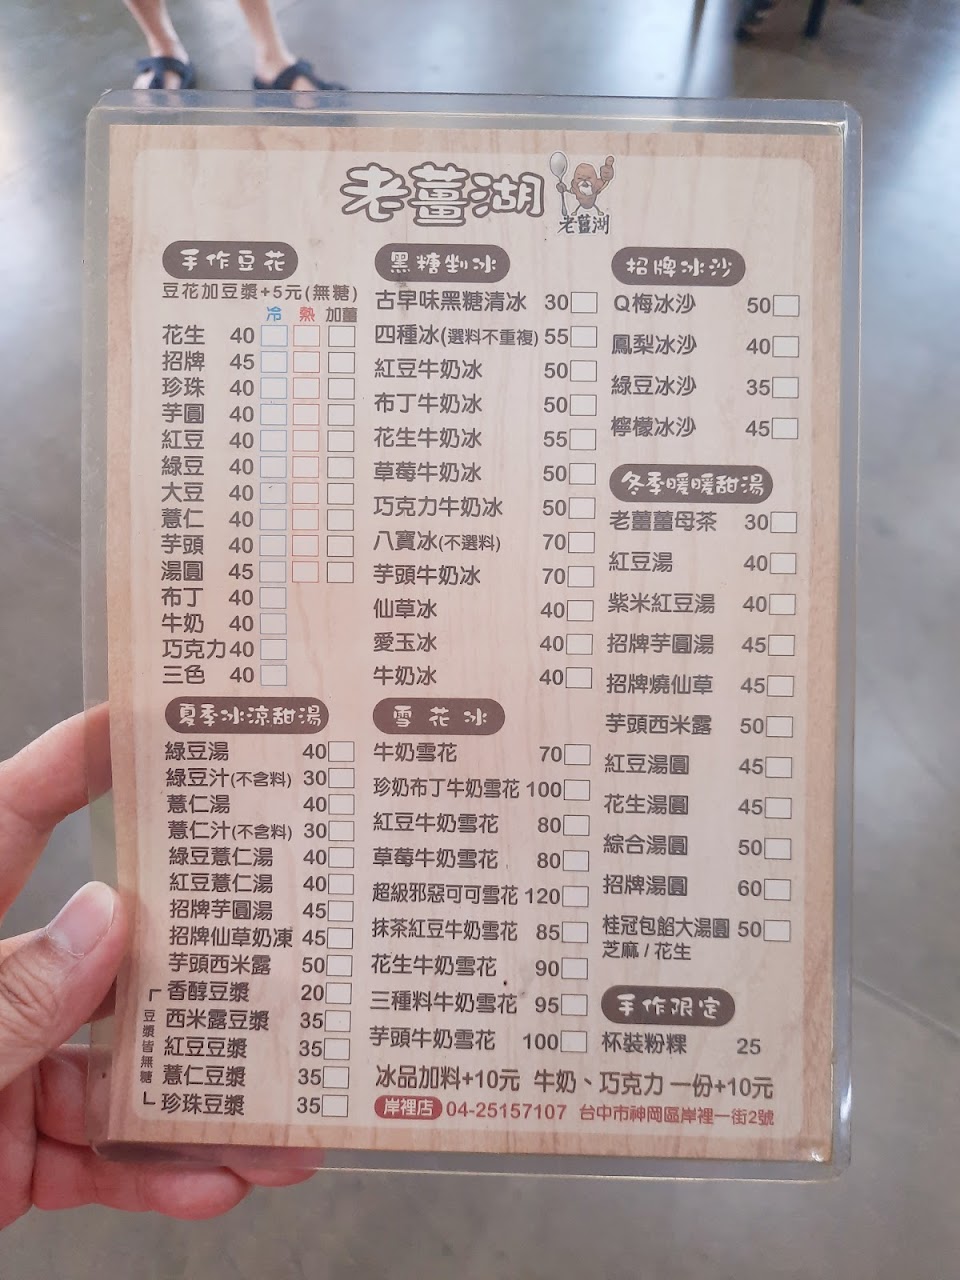 老薑湖
老薑湖
手作豆花
豆花加豆漿+5元(無糖)
冷 熱 加薑
花生 40
招牌 45
珍珠 40
芋圓 40
紅豆 40
綠豆 40
大豆 40
薏仁 40
芋頭 40
湯圓 45
布丁 40
牛奶 40
巧克力 40
三色 40
夏季冰涼甜湯
綠豆湯 40
綠豆汁(不含料) 30
薏仁湯 40
薏仁汁(不含料) 30
綠豆薏仁湯 40
紅豆薏仁湯 40
招牌芋圓湯 45
招牌仙草奶凍 45
芋頭西米露 50
香醇豆漿 20
西米露豆漿 35
紅豆豆漿 35
薏仁豆漿 35
珍珠豆漿 35
「豆漿皆無糖」
黑糖剉冰
古早味黑糖清冰 30
四種冰(選料不重複) 55
紅豆牛奶冰 50
布丁牛奶冰 50
花生牛奶冰 55
草莓牛奶冰 50
巧克力牛奶冰 50
八寶冰(不選料) 70
芋頭牛奶冰 70
仙草冰 40
愛玉冰 40
牛奶冰 40
雪花冰
牛奶雪花 70
珍奶布丁牛奶雪花 100
紅豆牛奶雪花 80
草莓牛奶雪花 80
超級邪惡可可雪花 120
抹茶紅豆牛奶雪花 85
花生牛奶雪花 90
三種料牛奶雪花 95
芋頭牛奶雪花 100
招牌冰沙
Q梅冰沙 50
鳳梨冰沙 40
綠豆冰沙 35
檸檬冰沙 45
冬季暖暖甜湯
老薑薑母茶 30
紅豆湯 40
紫米紅豆湯 40
招牌芋圓湯 45
招牌燒仙草 45
芋頭西米露 50
紅豆湯圓 45
花生湯圓 45
綜合湯圓 50
招牌湯圓 60
桂冠包餡大湯圓 50
芝麻/花生
手作限定
杯裝粉粿 25
冰品加料+10元 牛奶、巧克力 一份+10元
岸裡店 04-25157107 台中市神岡區岸裡一街2號